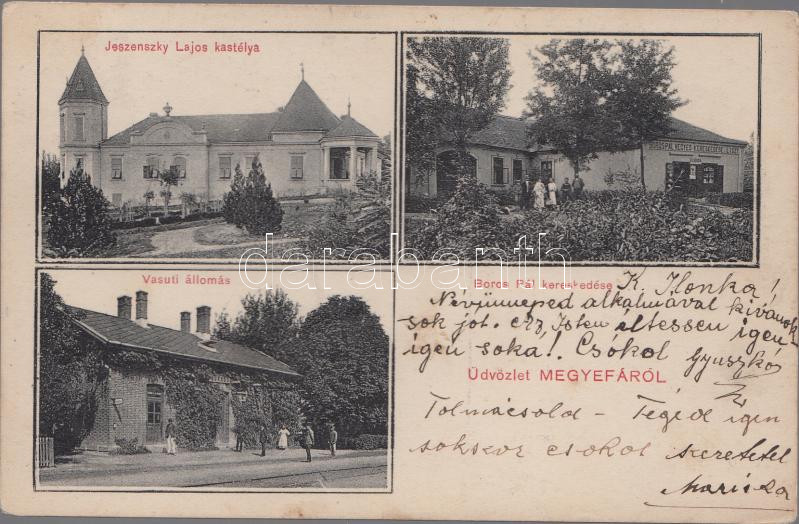 Jeszenszky Lajos kastélya
BOROS PÁL VEGYES KERESKEDÉSE
Vasuti állomás
Boros Pál kereskedése
darabanth
K. Ilonka!
Névünneped alkalmával kivánok
sok jót. Az Isten éltessen igen
igen soká! Csókol Gyuszkó
Üdvözlet MEGYEFÁRÓL
Tolmácsold – Téged igen
sokszor csókol szeretettel
Mariska